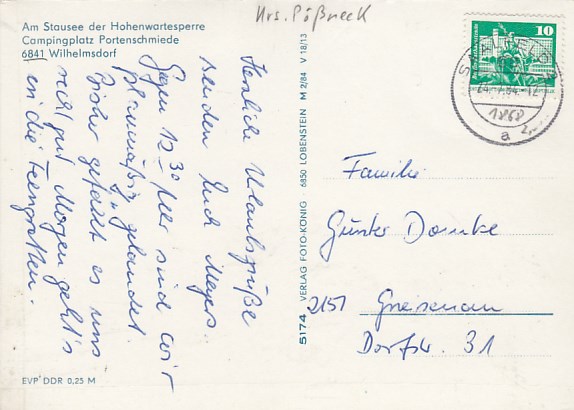 Krs. Pößneck
Am Stausee der Hohenwartesperre
Campingplatz Portenschmiede
6841 Wilhelmsdorf
Herzliche Urlaubsgrüße
senden Euch Meyers.
Gegen 12³⁰ Uhr sind wir
planmäßig gelandet.
Bisher gefällt es uns
recht gut. Morgen geht's
in die Feengrotten.
EVP DDR 0,25 M
5174 VERLAG FOTO-KÖNIG 6850 LOBENSTEIN M 2/84 V 18/13
10
1868
a
Familie
Günter Domke
2151 Grieşenau
Dorfstr. 31